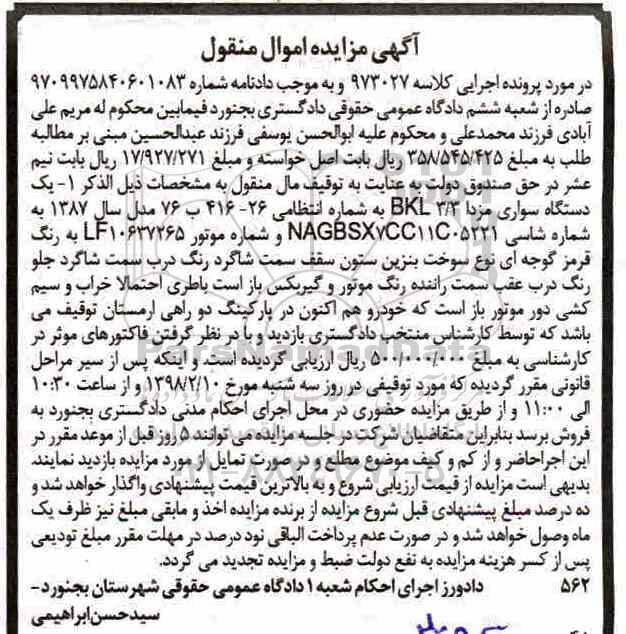 آگهی مزایده اموال منقول
در مورد پرونده اجرایی کلاسه ۹۷۳۰۲۷ و به موجب دادنامه شماره ۹۷۰۹۹۷۵۸۴۰۶۰۱۰۸۳
صادره از شعبه ششم دادگاه عمومی حقوقی دادگستری بجنورد فیمابین محکوم له مریم علی
آبادی فرزند محمدعلی و محکوم علیه ابوالحسن یوسفی فرزند عبدالحسین مبنی بر مطالبه
طلب به مبلغ ۳۵۸/۵۴۵/۴۲۵ ریال بابت اصل خواسته و مبلغ ۱۷/۹۲۷/۲۷۱ ریال بابت نیم
عشر در حق صندوق دولت به عنایت به توقیف مال منقول به مشخصات ذیل الذکر ۱- یک
دستگاه سواری مزدا ۳/۲ BKL به شماره انتظامی ۲۶- ۴۱۶ ب ۷۶ مدل سال ۱۳۸۷ به
شماره شاسی NAGBSX۷CC۱۱C۰۵۲۲۱ و شماره موتور LF۱۰۶۳۷۲۶۵ به رنگ
قرمز گوجه ای نوع سوخت بنزین ستون سقف سمت شاگرد رنگ درب سمت شاگرد جلو
رنگ درب عقب سمت راننده رنگ موتور و گیربکس باز است باطری احتمالا خراب و سیم
کشی دور موتور باز است که خودرو هم اکنون در پارکینگ دو راهی ارمستان توقیف می
باشد که توسط کارشناس منتخب دادگستری بازدید و با در نظر گرفتن فاکتورهای موثر در
کارشناسی به مبلغ ۵۰۰/۰۰۰/۰۰۰ ریال ارزیابی گردیده است. و اینکه پس از سیر مراحل
قانونی مقرر گردیده که مورد توقیفی در روز سه شنبه مورخ ۱۳۹۸/۲/۱۰ و از ساعت ۱۰:۳۰
الی ۱۱:۰۰ و از طریق مزایده حضوری در محل اجرای احکام مدنی دادگستری بجنورد به
فروش برسد بنابراین متقاضیان شرکت در جلسه مزایده می توانند ۵ روز قبل از موعد مقرر در
این اجرا حاضر و از کم و کیف موضوع مطلع و در صورت تمایل از مورد مزایده بازدید نمایند.
بدیهی است مزایده از قیمت ارزیابی شروع و به بالاترین قیمت پیشنهادی واگذار خواهد شد و
ده درصد مبلغ پیشنهادی قبل شروع مزایده از برنده مزایده اخذ و مابقی مبلغ نیز ظرف یک
ماه وصول خواهد شد و در صورت عدم پرداخت الباقی نود درصد در مهلت مقرر مبلغ تودیعی
پس از کسر هزینه مزایده به نفع دولت ضبط و مزایده تجدید می گردد.
۵۶۲ دادورز اجرای احکام شعبه ۱ دادگاه عمومی حقوقی شهرستان بجنورد-
سیدحسن ابراهیمی